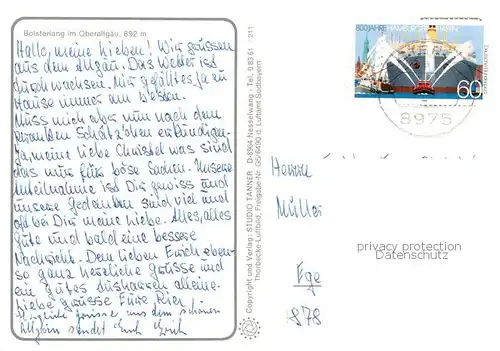 Bolsterlang im Oberallgäu, 892 m
Hallo, meine Lieben! Wir grüssen
aus dem Allgäu. Das Wetter ist
durchwachsen. Mir gefällt es ja zu
Hause immer am besten.
Muss mich aber nun nach dem
kranken Schätzchen erkundigen.
Ja, meine liebe Christel was sind
das nur für böse Sachen. Unsere
Anteilnahme ist Dir gewiss und
unsere Gedanken sind viel und
oft bei Dir meine Liebe. Alles, alles
Gute und bald eine bessere
Nachricht. Dem lieben Erich eben-
so ganz herzliche Grüsse und
ein gutes Ausharren alleine.
Liebe Grüsse Eure
Herzliche Grüsse aus dem schönen
Allgäu sendet Euch Erich
Copyright und Verlag: STUDIO TANNER · D-8964 Nesselwang · Tel. 0 83 61
211
Thorbecke-Luftbild, Freigabe-Nr. G5/6490 d. Luftamt Südbayern
800 JAHRE HAMBURGER HAFEN
60
8975
Herrn
Müller
privacy protection
Datenschutz
Ege
878